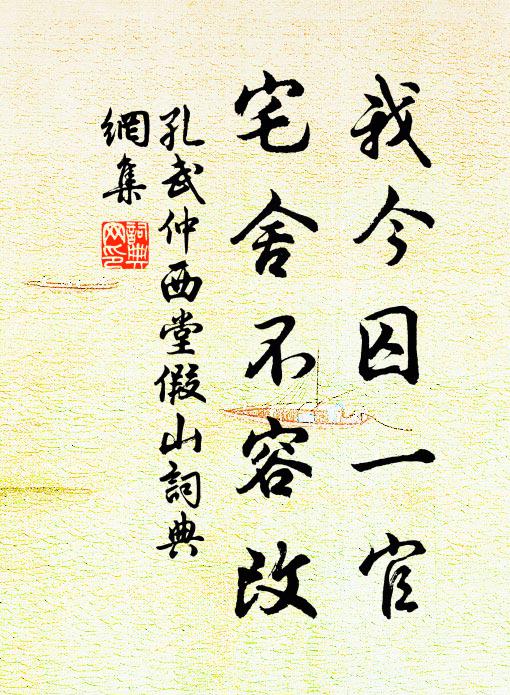 我今囚一官
宅舍不容改
孔武仲西堂假山詞典
網集
詞典
网印